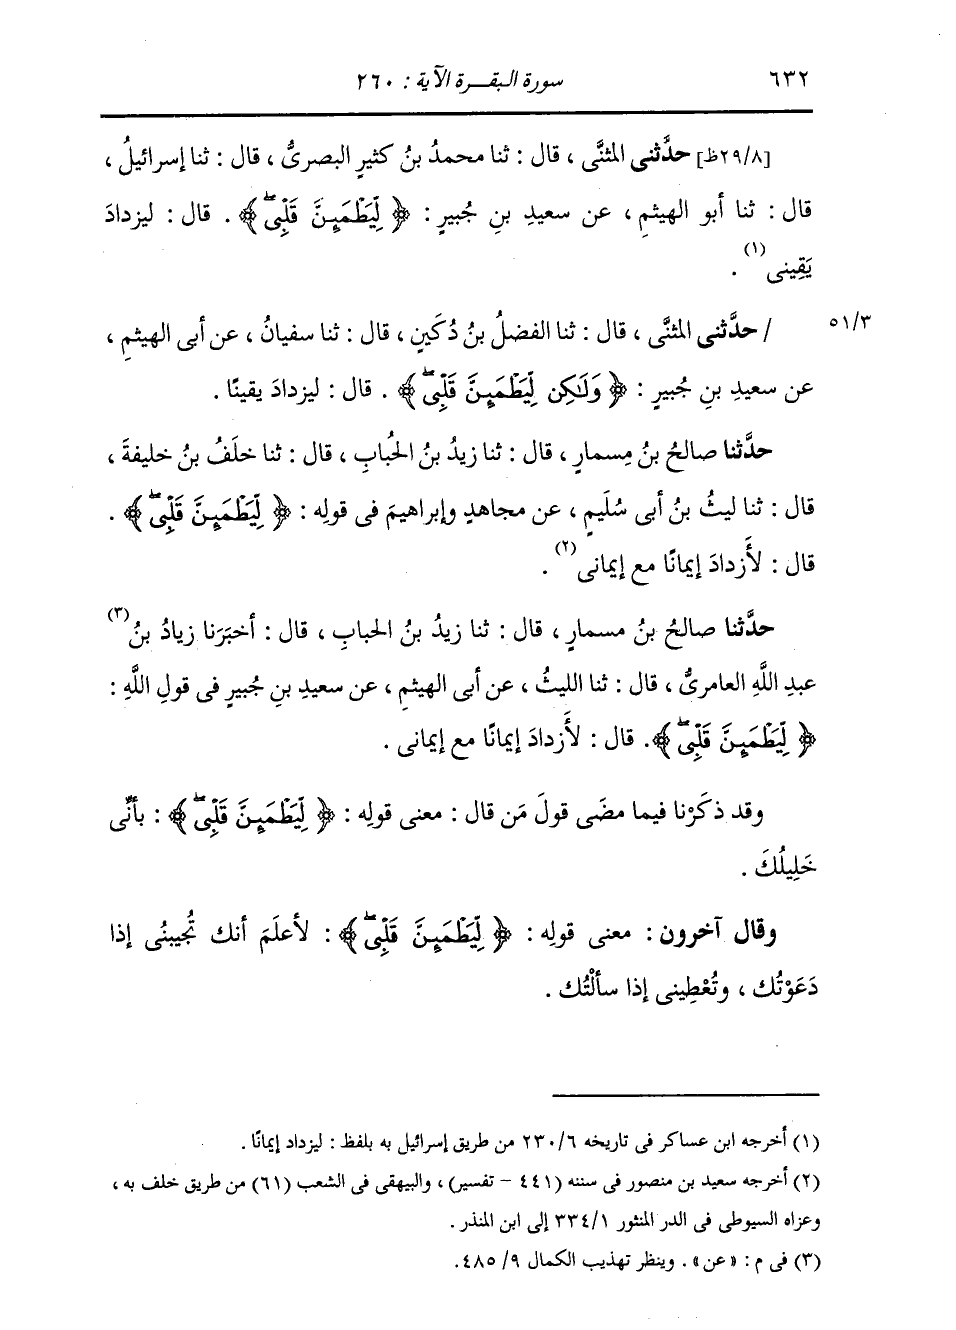 ٦٣٢ سورة البقـــرة الآية : ٢٦٠
[٢٩/٨ظ] حدَّثنى المثنَّى ، قال : ثنا محمدُ بنُ كثيرٍ البصرىُّ ، قال : ثنا إسرائيلُ ،
قال : ثنا أبو الهيثمِ ، عن سعيدِ بنِ جُبيرٍ : ﴿ لِّيَطْمَئِنَّ قَلْبِىۖ ﴾ . قال : ليزدادَ
يَقِينى(١) .
٥١/٣ / حدَّثنى المثنَّى ، قال : ثنا الفضلُ بنُ دُكَينٍ ، قال : ثنا سفيانُ ، عن أبى الهيثمِ ،
عن سعيدِ بنِ جُبيرٍ : ﴿ وَلَٰكِن لِّيَطْمَئِنَّ قَلْبِىۖ ﴾ . قال : ليزدادَ يقينًا .
حدَّثنا صالحُ بنُ مِسمارٍ ، قال : ثنا زيدُ بنُ الحُبابِ ، قال : ثنا خلَفُ بنُ خليفةَ ،
قال : ثنا ليثُ بنُ أبى سُلَيمٍ ، عن مجاهدٍ وإبراهيمَ فى قولِه : ﴿ لِّيَطْمَئِنَّ قَلْبِىۖ ﴾ .
قال : لأَزدادَ إيمانًا مع إيمانى(٢) .
حدَّثنا صالحُ بنُ مسمارٍ ، قال : ثنا زيدُ بنُ الحبابِ ، قال : أخبَرَنا زيادُ بنُ(٣)
عبدِ اللَّهِ العامرىُّ ، قال : ثنا الليثُ ، عن أبى الهيثمِ ، عن سعيدِ بنِ جُبيرٍ فى قولِ اللَّهِ :
﴿ لِّيَطْمَئِنَّ قَلْبِىۖ ﴾. قال : لأَزدادَ إيمانًا مع إيمانى .
وقد ذكَرْنا فيما مضَى قولَ مَن قال : معنى قولِه : ﴿ لِّيَطْمَئِنَّ قَلْبِىۖ ﴾ : بأنِّى
خَلِيلُكَ .
وقال آخرون : معنى قولِه : ﴿ لِّيَطْمَئِنَّ قَلْبِىۖ ﴾ : لأعلَمَ أنك تُجيبنُى إذا
دَعَوْتُك ، وتُعْطِينى إذا سألْتُك .
(١) أخرجه ابن عساكر فى تاريخه ٢٣٠/٦ من طريق إسرائيل به بلفظ : ليزداد إيمانًا .
(٢) أخرجه سعيد بن منصور فى سننه (٤٤١ - تفسير) ، والبيهقى فى الشعب (٦١) من طريق خلف به ،
وعزاه السيوطى فى الدر المنثور ٣٣٤/١ إلى ابن المنذر .
(٣) فى م : «عن» . وينظر تهذيب الكمال ٩/ ٤٨٥.